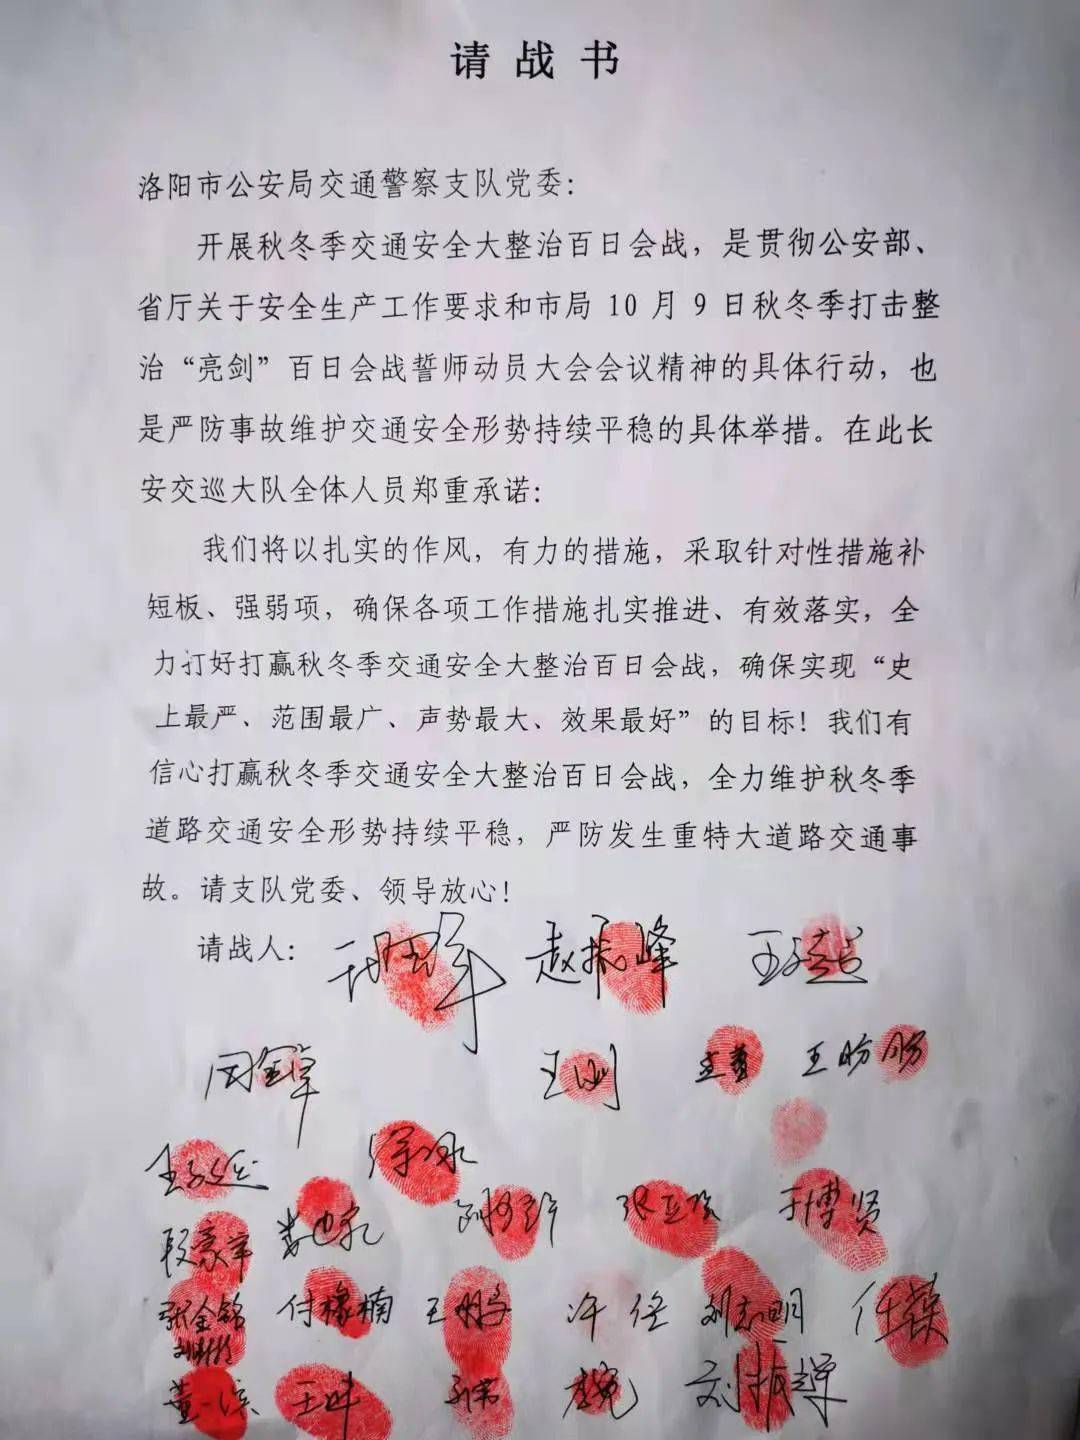 请战书
洛阳市公安局交通警察支队党委：
开展秋冬季交通安全大整治百日会战，是贯彻公安部、
省厅关于安全生产工作要求和市局10月9日秋冬季打击整
治“亮剑”百日会战誓师动员大会会议精神的具体行动，也
是严防事故维护交通安全形势持续平稳的具体举措。在此长
安交巡大队全体人员郑重承诺：
我们将以扎实的作风，有力的措施，采取针对性措施补
短板、强弱项，确保各项工作措施扎实推进、有效落实，全
力打好打赢秋冬季交通安全大整治百日会战，确保实现“史
上最严、范围最广、声势最大、效果最好”的目标！我们有
信心打赢秋冬季交通安全大整治百日会战，全力维护秋冬季
道路交通安全形势持续平稳，严防发生重特大道路交通事
故。请支队党委、领导放心！
请战人： 赵振峰
王盼盼
于博贤
张金锦 付橡楠 王鹏 许佟 刘志明
刘振军